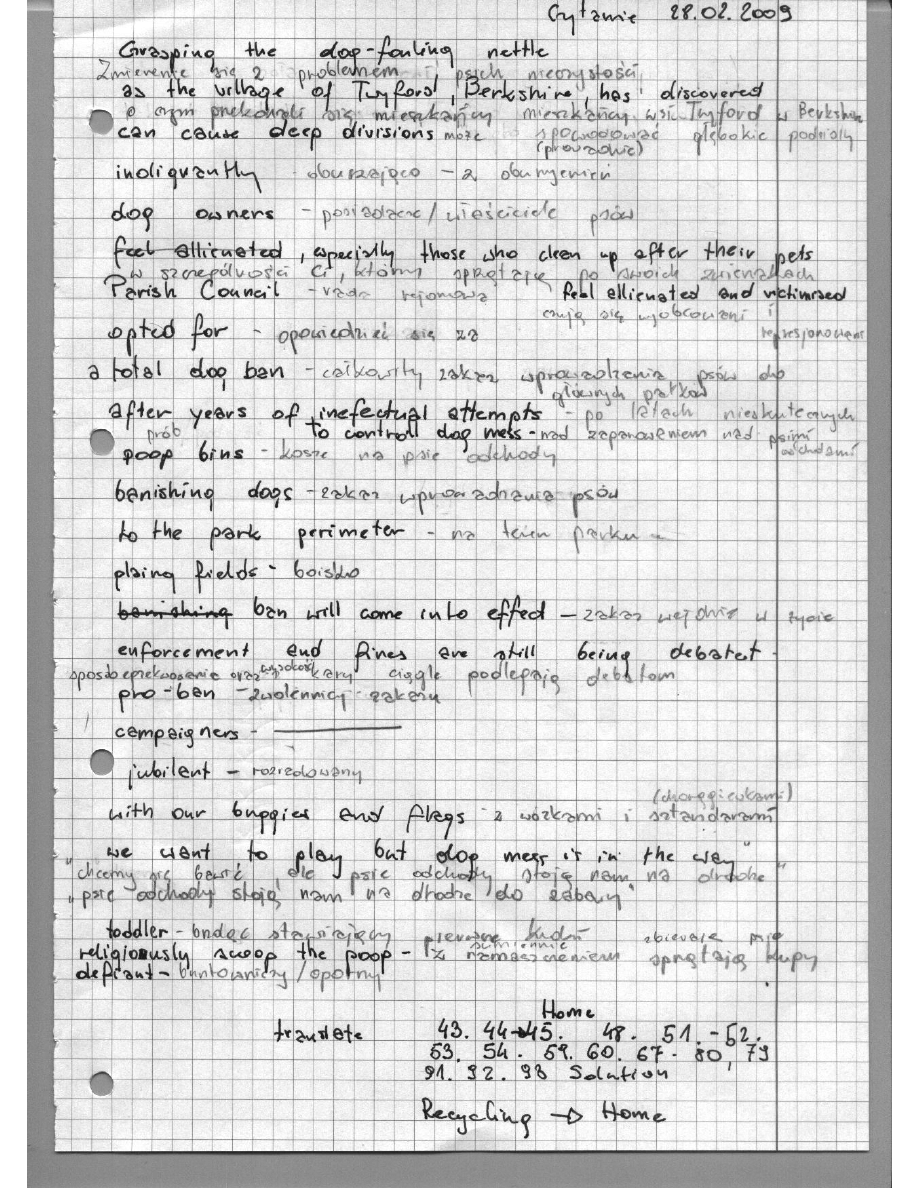 Czytanie 28.02.2009
Grasping the dog-fouling nettle
Zmierenie się z problemem psich nieczystości
as the village of Twyford, Berkshire, has discovered
o czym przekonali się mieszkańcy mieszkańcy wsi Twyford w Berkshire
can cause deep divisions może spowodować głębokie podziały
(prowadzić)
indignantly oburzająco - z oburzeniem
dog owners - posiadacze/właściciele psów
feel allienated, especially those who clean up after their pets
w szczególności ci, którzy sprzątają po swoich zwierzakach
Parish Council - rada rejonowa feel allienated and victimised
czują się wyobcowani i
opted for - opowiedzieć się za represjonowani
a total dog ban - całkowity zakaz wprowadzenia psów do
głównych parków
after years of inefectual attempts - po latach nieskutecznych
prób to controll dog mess - nad zapanowaniem nad psimi
odchodami
poop bins - kosze na psie odchody
banishing dogs - zakaz wprowadzania psów
to the park perimeter - na teren parku -
plaing fields - boisko
banishing ban will come into effect - zakaz wejdzie w życie
enforcement and fines are still being debatet -
sposób egzekwowania oraz wysokość kary ciągle podlegają debatom
pro-ban - zwolennicy zakazu
campaigners -
jubilent - rozradowany
(chorągiewkami)
with our buggies and flags z wózkami i sztandarami
"we want to play but dog mess is in the way"
"chcemy się bawić, ale psie odchody stoją nam na drodze"
"psie odchody stoją nam na drodze do zabawy"
toddler - brzdąc stawiający pierwsze kroki zbierają psie
sumiennie
religiously scoop the poop - z namaszczeniem sprzątają kupy
defiant - buntowniczy/oporny
Home
translete 43. 44→45. 48. 51. - 52.
53. 54. 59. 60. 67. 80, 79
91. 92. 98 Solution
Recycling → Home